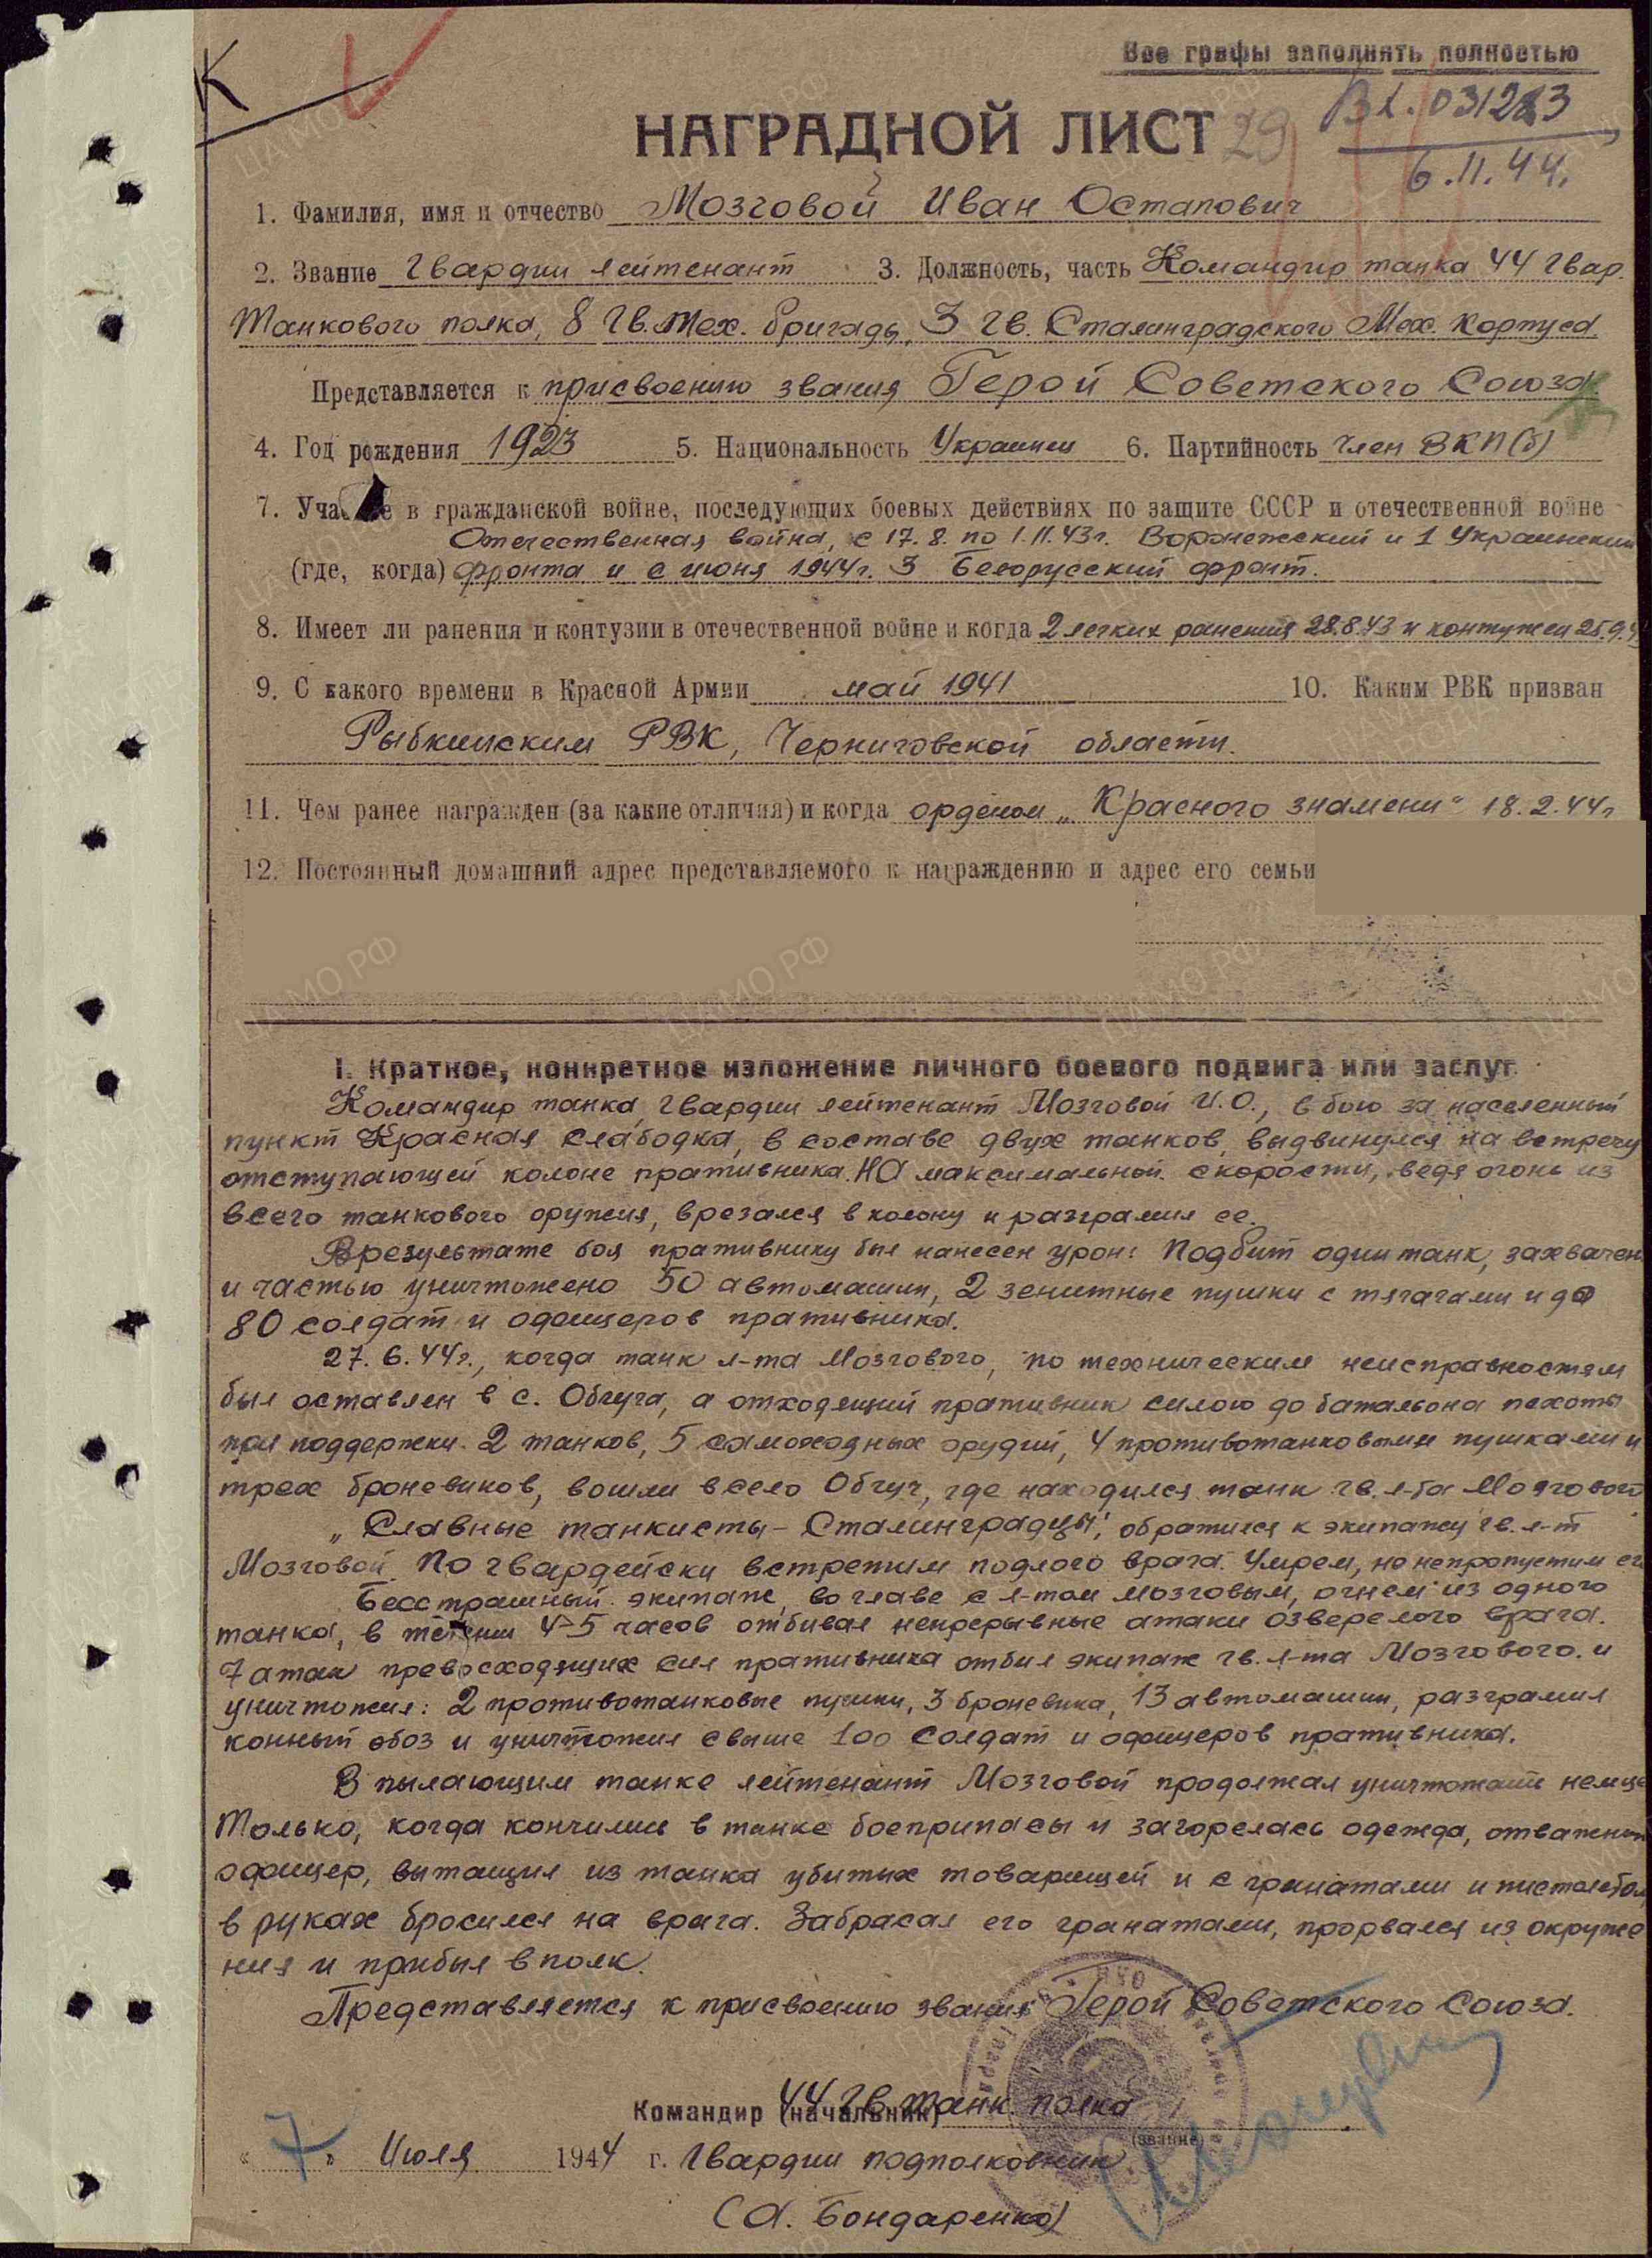 К
Все графы заполнять полностью
НАГРАДНОЙ ЛИСТ 29
Вх. 031283
6.11.44.
1. Фамилия, имя и отчество Мозговой Иван Остапович
2. Звание Гвардии лейтенант 3. Должность, часть Командир танка 44 Гвар.
Танкового полка, 8 Гв. Мех. бригады, 3 Гв. Сталинградского Мех. Корпуса.
Представляется к присвоению звания Герой Советского Союза
4. Год рождения 1923 5. Национальность Украинец 6. Партийность Член ВКП(б)
7. Участие в гражданской войне, последующих боевых действиях по защите СССР и отечественной войне
Отечественная война, с 17.8. по 1.11.43г. Воронежский и 1 Украинский
(где, когда) фронта и с июня 1944г. 3 Белорусский фронт.
8. Имеет ли ранения и контузии в отечественной войне и когда 2 легких ранения 28.8.43 и контужен 25.9.43
9. С какого времени в Красной Армии май 1941 10. Каким РВК призван
Рыбкинским РВК, Черниговской области.
11. Чем ранее награжден (за какие отличия) и когда орденом „Красного знамени" 18.2.44г
12. Постоянный домашний адрес представляемого к награждению и адрес его семьи
I. Краткое, конкретное изложение личного боевого подвига или заслуг
Командир танка, гвардии лейтенант Мозговой И.О., в бою за населенный
пункт Красная слабодка, в составе двух танков, выдвинулся на встречу
отступающей колоне пративника. На максимальной скорости, ведя огонь из
всего танкового оружия, врезался в колону и разграмил ее.
В результате боя пративнику был нанесен урон: Подбит один танк, захвачен
и частью уничтожено 50 автомашин, 2 зенитные пушки с тягачами и до
80 солдат и офицеров пративника.
27.6.44г., когда танк л-та Мозгового, по техническим неисправностям
был оставлен в с. Обчуга, а отходящий пративник силою до батальона пехоты
при поддержки 2 танков, 5 самоходных орудий, 4 противотанковыми пушками и
трех броневиков, вошли в село Обчуг, где находился танк гв. л-та Мозгового
„Славные танкисты - Сталинградцы", обратился к экипажу гв. л-т
Мозговой. По гвардейски встретим подлого врага. Умрем, но непропустим его
Бесстрашный экипаж, во главе с л-том Мозговым, огнем из одного
танка, в течении 4-5 часов отбивал непрерывные атаки озверелого врага.
7 атак превосходящих сил пративника отбил экипаж гв. л-та Мозгового. и
уничтожил: 2 противотанковые пушки, 3 броневика, 13 автомашин, разграмил
конный обоз и уничтожил свыше 100 солдат и офицеров пративника.
В пылающим танке лейтенант Мозговой продолжал уничтожать немцев
Только, когда кончились в танке боеприпасы и загорелась одежда, отважный
офицер, вытащил из танка убитых товарищей и с гранатами и пистолетом
в руках бросился на врага. Забрасал его гранатами, прорвался из окруже
ния и прибыл в полк.
Представляется к присвоению звания Герой Советского Союза.
Командир (начальник) 44 Гв. танк. полка
(звание)
« 7 » Июля 1944 г. Гвардии подполковник
(А. Бондаренко)